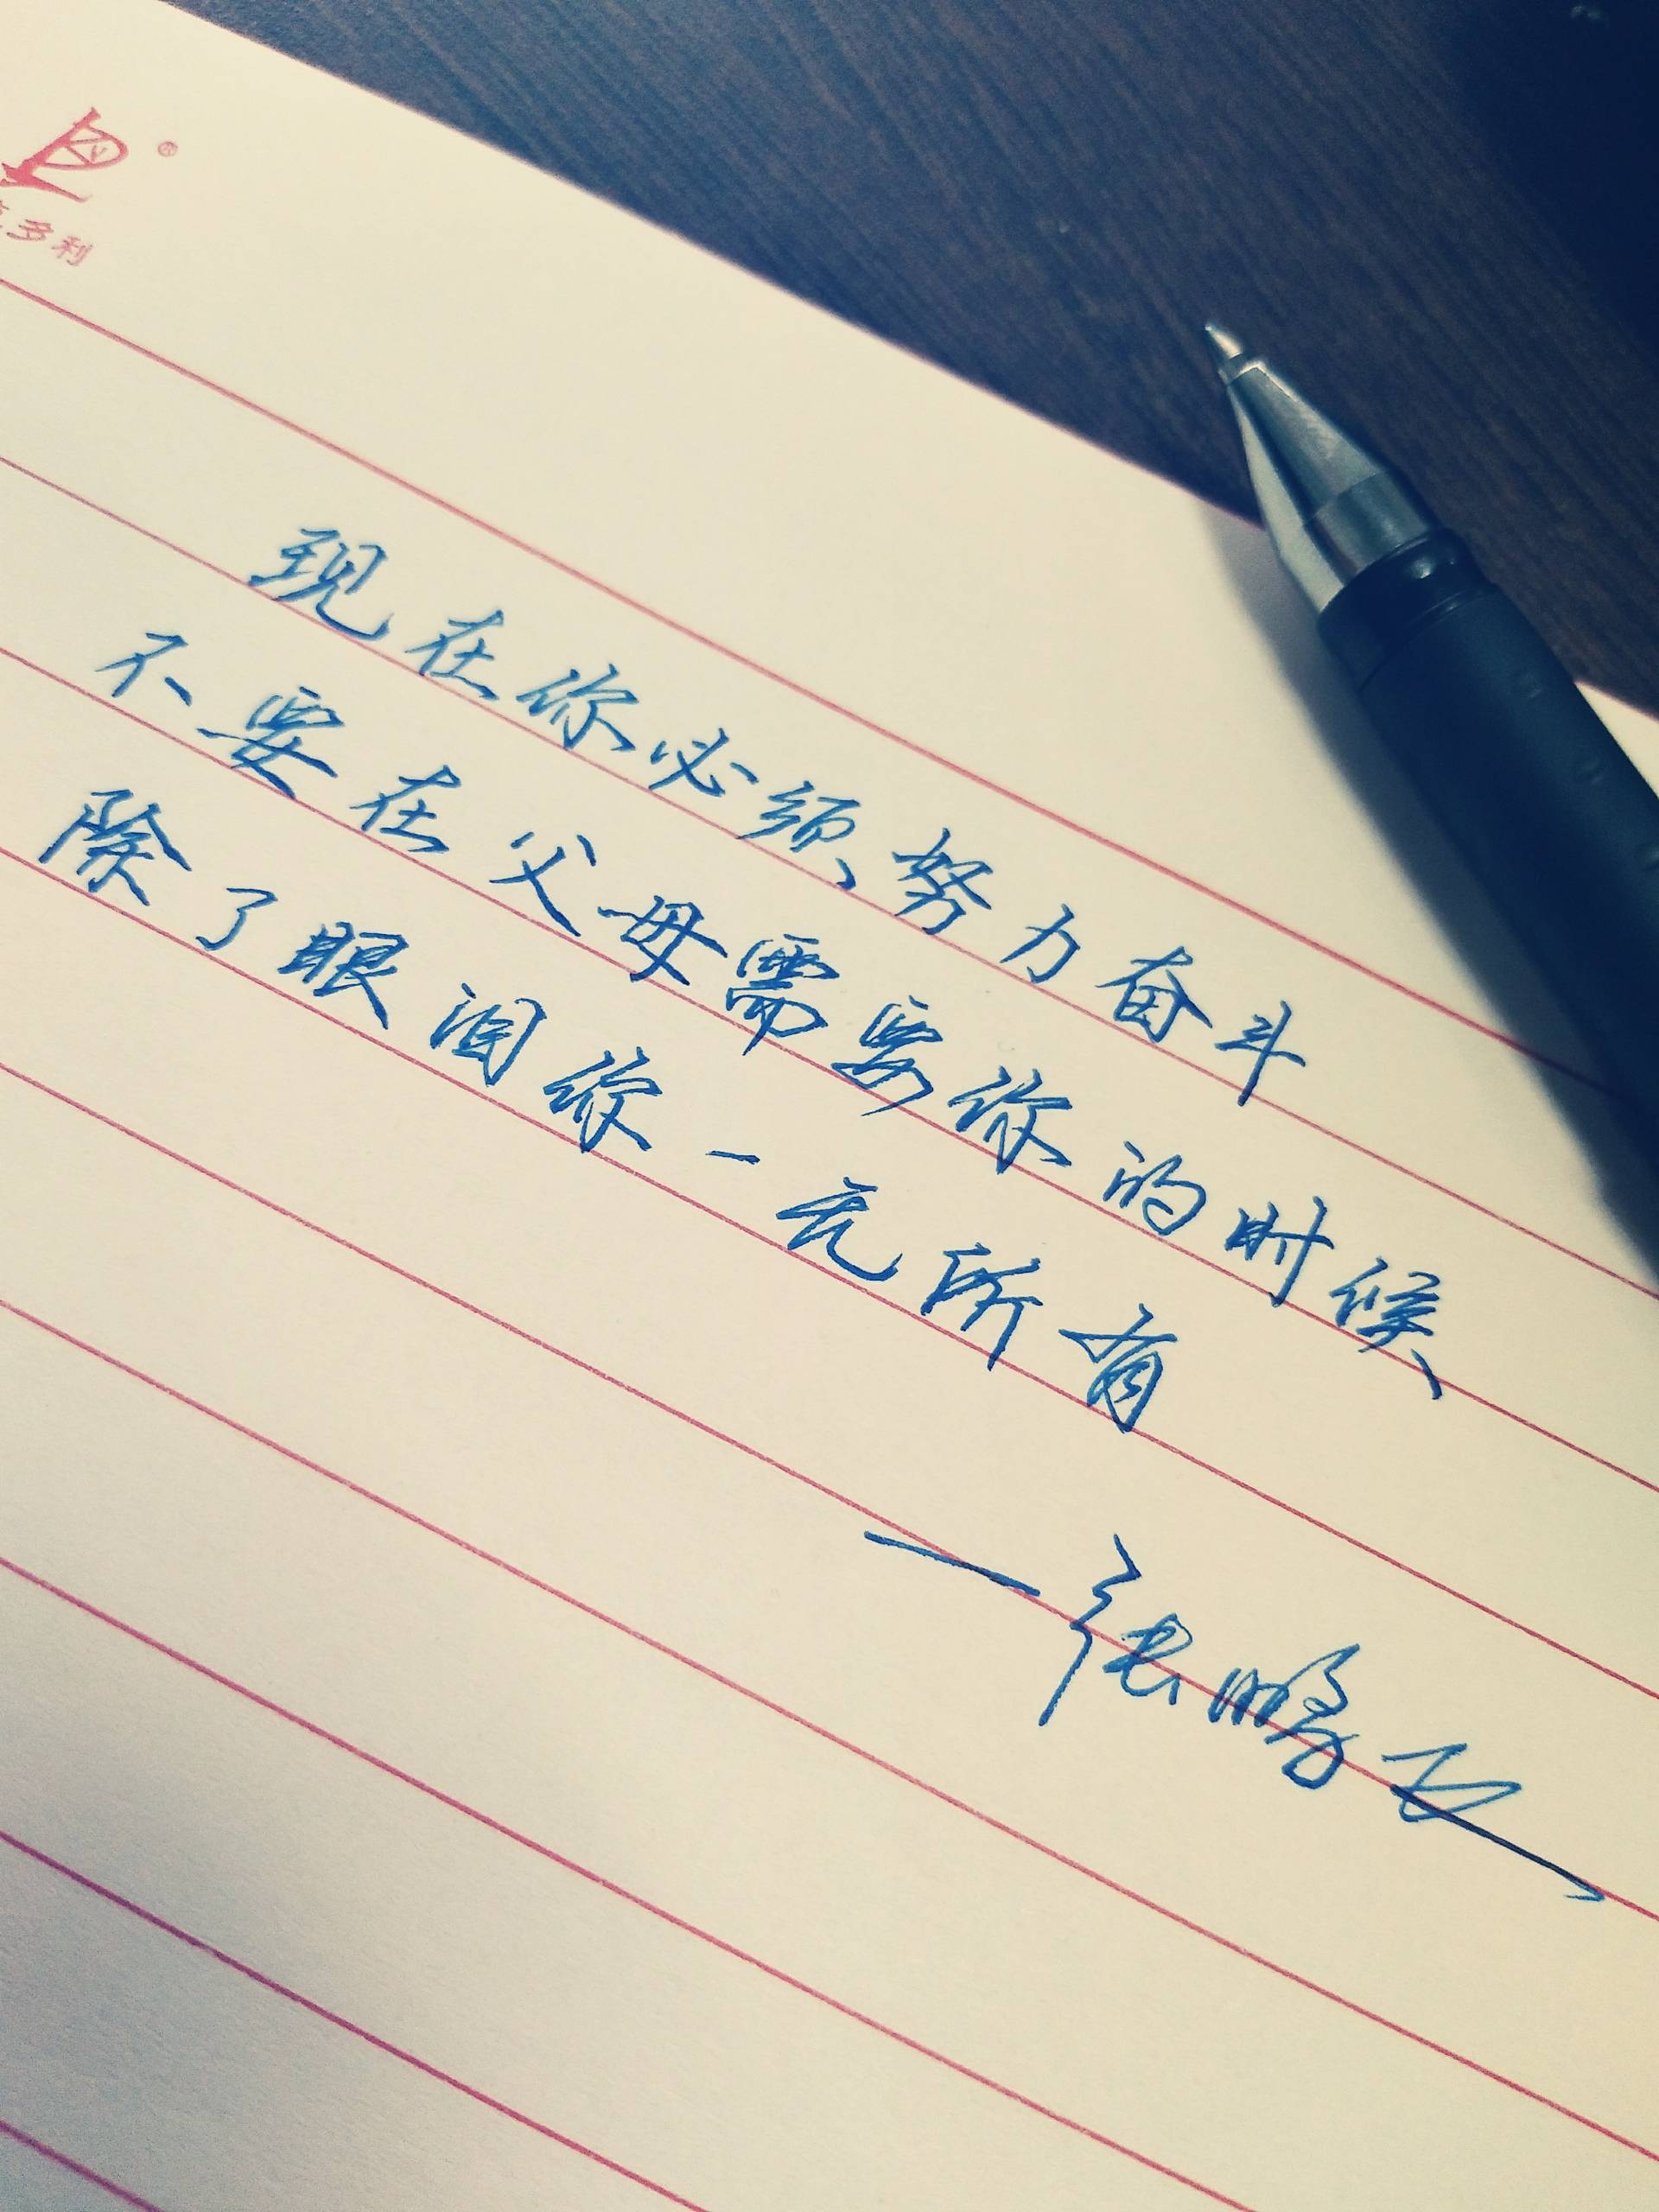 多利
现在你必须努力奋斗
不要在父母需要你的时候
除了眼泪你一无所有
——张鹏